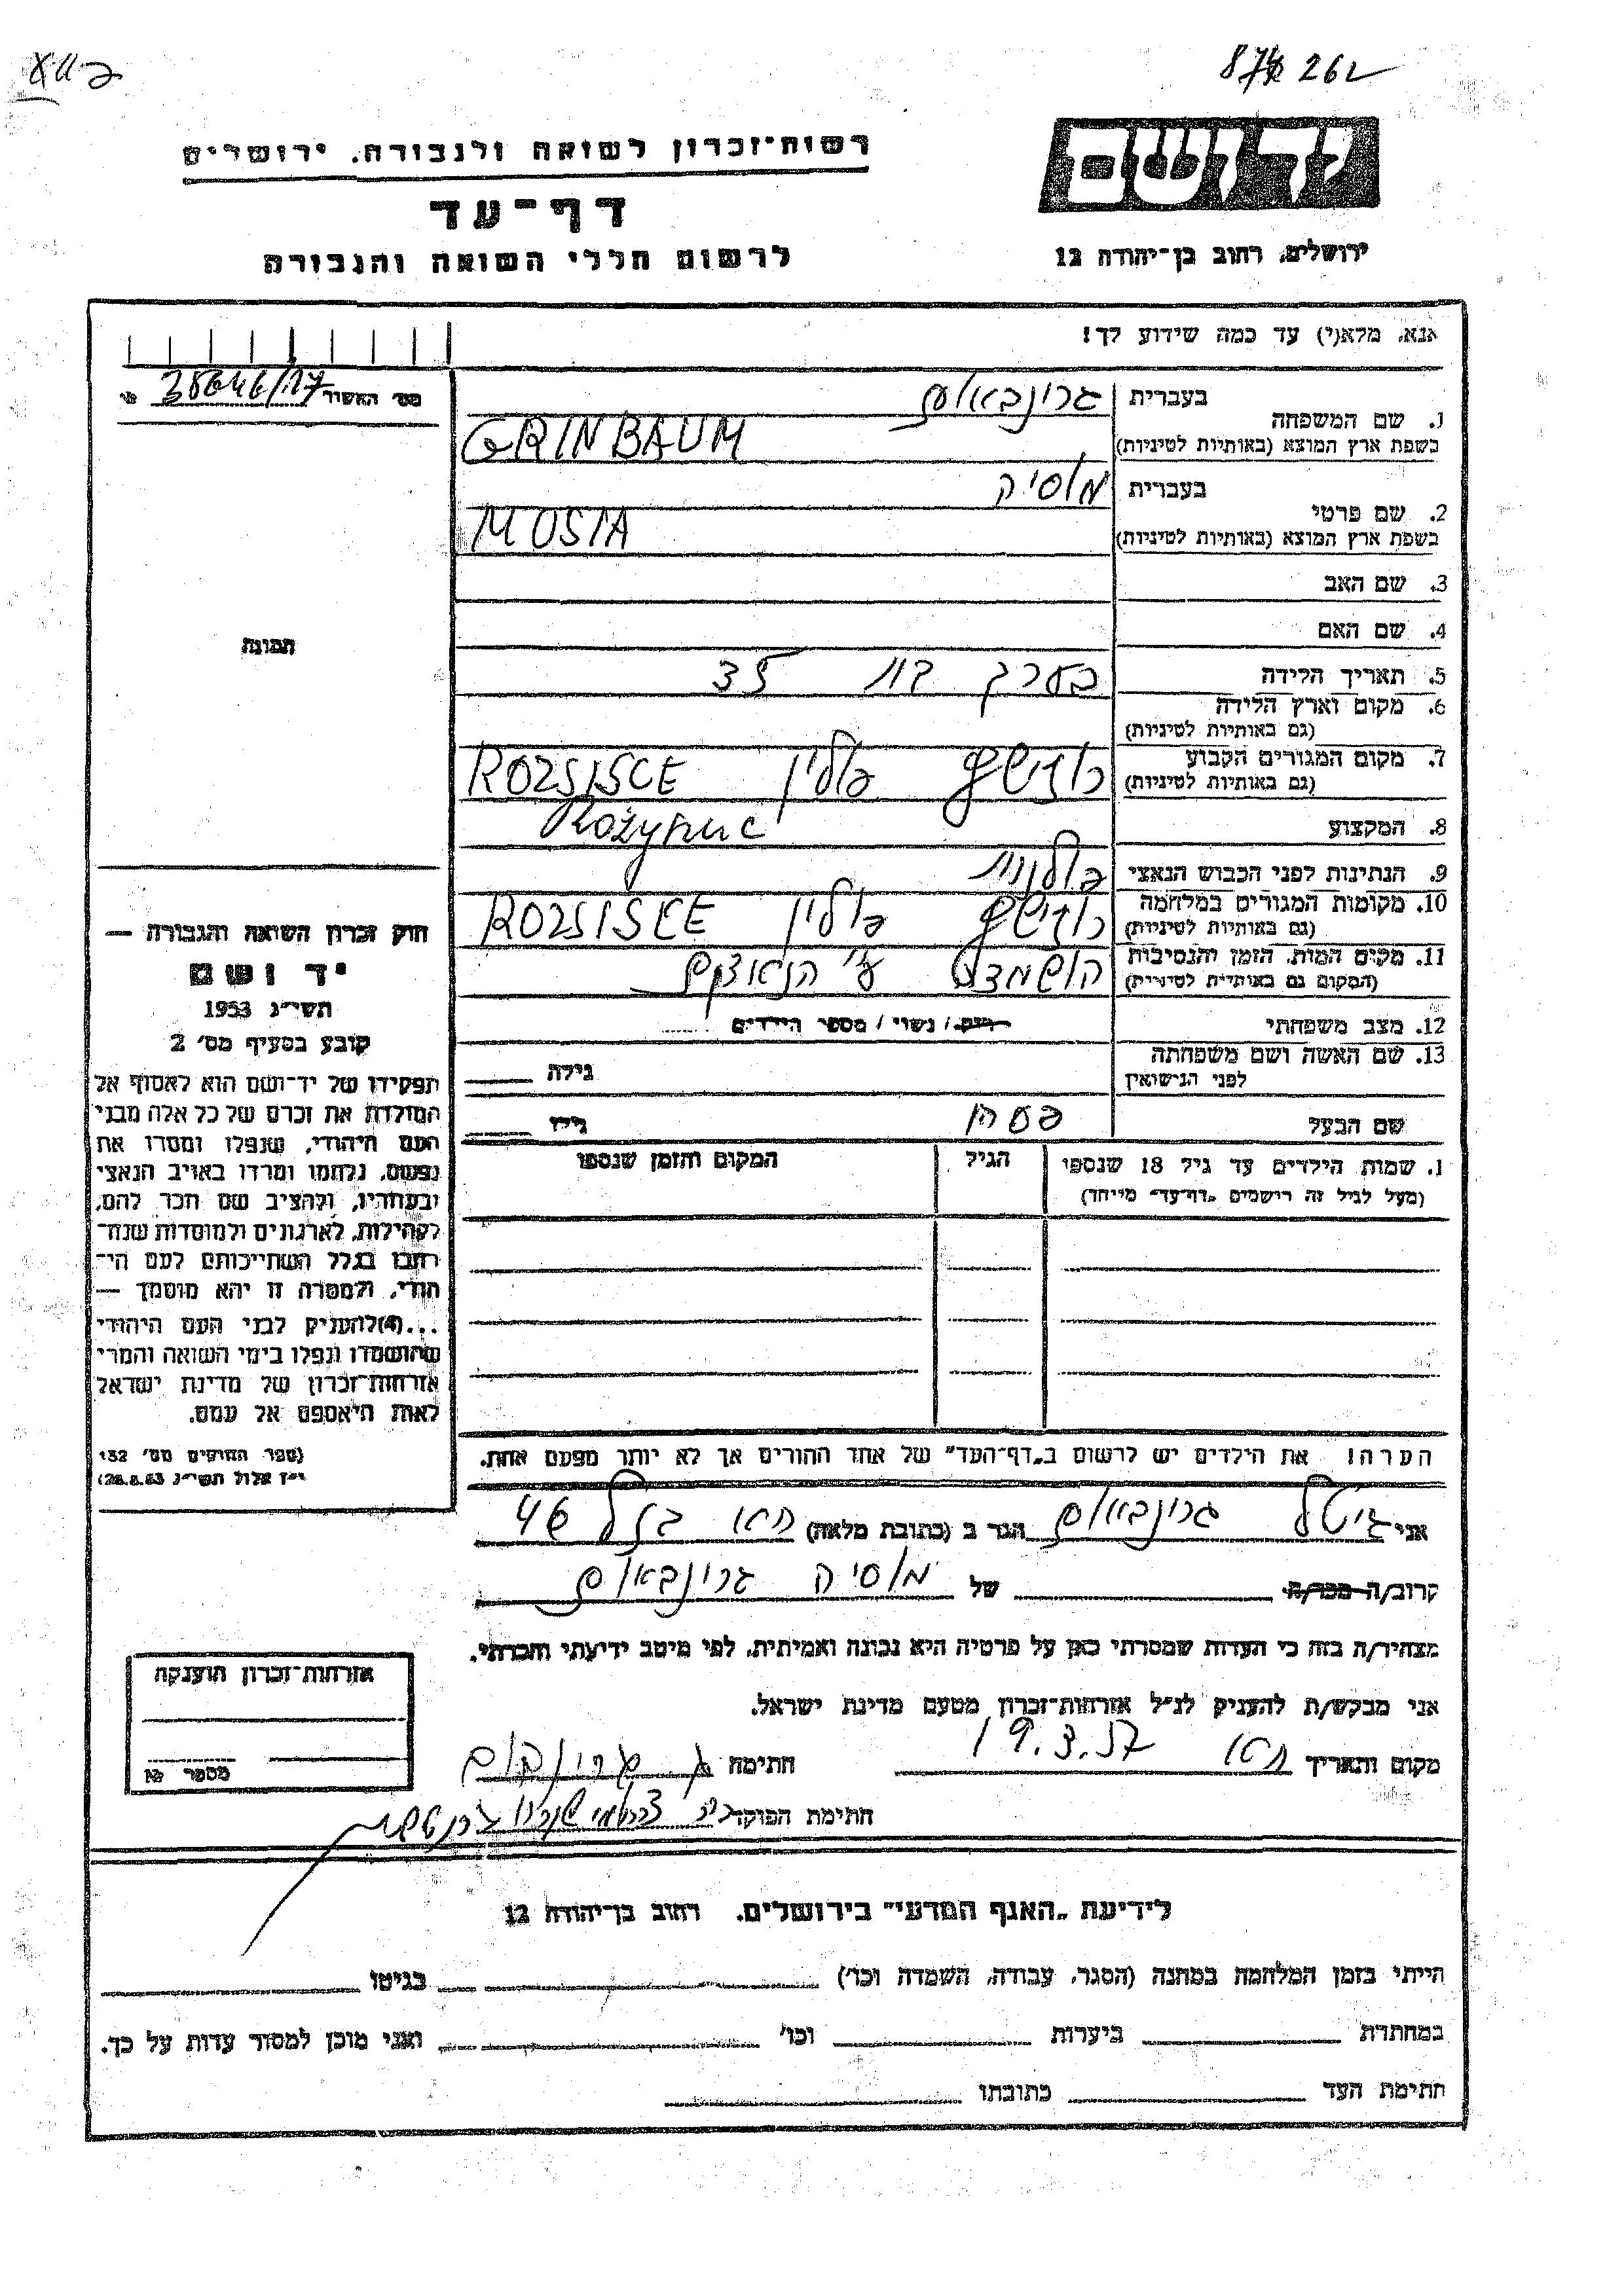 רשות־זכרון לשואה ולגבורה, ירושלים
דף־עד
לרשום חללי השואה והגבורה
יד ושם
ירושלים, רחוב בן־יהודה 12
אנא, מלא(י) עד כמה שידוע לך!
מס׳ האשור
1. שם המשפחה
בעברית גרינבאום
בשפת ארץ המוצא (באותיות לטיניות) GRINBAUM
2. שם פרטי
בעברית מוסיה
בשפת ארץ המוצא (באותיות לטיניות) MOSIA
3. שם האב
4. שם האם
5. תאריך הלידה בערך בת 35
6. מקום וארץ הלידה
(גם באותיות לטיניות)
7. מקום המגורים הקבוע רוזישץ פולין ROZSISCE
(גם באותיות לטיניות)
8. המקצוע
9. הנתינות לפני הכבוש הנאצי פולנית
10. מקומות המגורים במלחמה רוזישץ פולין ROZSISCE
(גם באותיות לטיניות)
11. מקום המות, הזמן והנסיבות הושמדה ע״י הנאצים
(המקום גם באותיות לטיניות)
12. מצב משפחתי רווק/ נשוי/ מספר הילדים
13. שם האשה ושם משפחתה גילה
לפני הנישואין
שם הבעל גילו
תמונה
חוק זכרון השואה והגבורה —
יד ושם
תשי״ג 1953
קובע בסעיף מס׳ 2
תפקידו של יד־ושם הוא לאסוף אל
המולדת את זכרם של כל אלה מבני
העם היהודי, שנפלו ומסרו את
נפשם, נלחמו ומרדו באויב הנאצי
ובעוזריו, ולהציב שם וזכר להם,
לקהילות, לארגונים ולמוסדות שנח־
רבו בגלל השתייכותם לעם הי־
הודי, ולמטרה זו יהא מוסמך —
...(4)להעניק לבני העם היהודי
שהושמדו ונפלו בימי השואה והמרי
אזרחות־זכרון של מדינת ישראל
לאות היאספם אל עמם.
(ספר החוקים מס׳ 132
י״ז אלול תשי״ג 28.8.53)
1. שמות הילדים עד גיל 18 שנספו הגיל המקום והזמן שנספו
(מעל לגיל זה רישמים „דף־עד״ מייחד)
הערה! את הילדים יש לרשום ב„דף־העד״ של אחד ההורים אך לא יותר מפעם אחת.
אני גיטל גרינבאום הגר ב (כתובת מלאה) 46
קרוב/ה מכר/ה של מוסיה גרינבאום
מצהיר/ה בזה כי העדות שמסרתי כאן על פרטיה היא נכונה ואמיתית, לפי מיטב ידיעתי והכרתי.
אני מבקש/ת להעניק לנ״ל אזרחות־זכרון מטעם מדינת ישראל.
מקום ותאריך 19.3.57 חתימה
חתימת הפוקד
אזרחות־זכרון הוענקה
מספר №
לידיעת „האגף המדעי״ בירושלים, רחוב בן־יהודה 12
הייתי בזמן המלחמה במחנה (הסגר, עבודה, השמדה וכו׳) בגיטו
במחתרת ביערות וכו׳ ואני מוכן למסור עדות על כך.
חתימת העד כתובתו